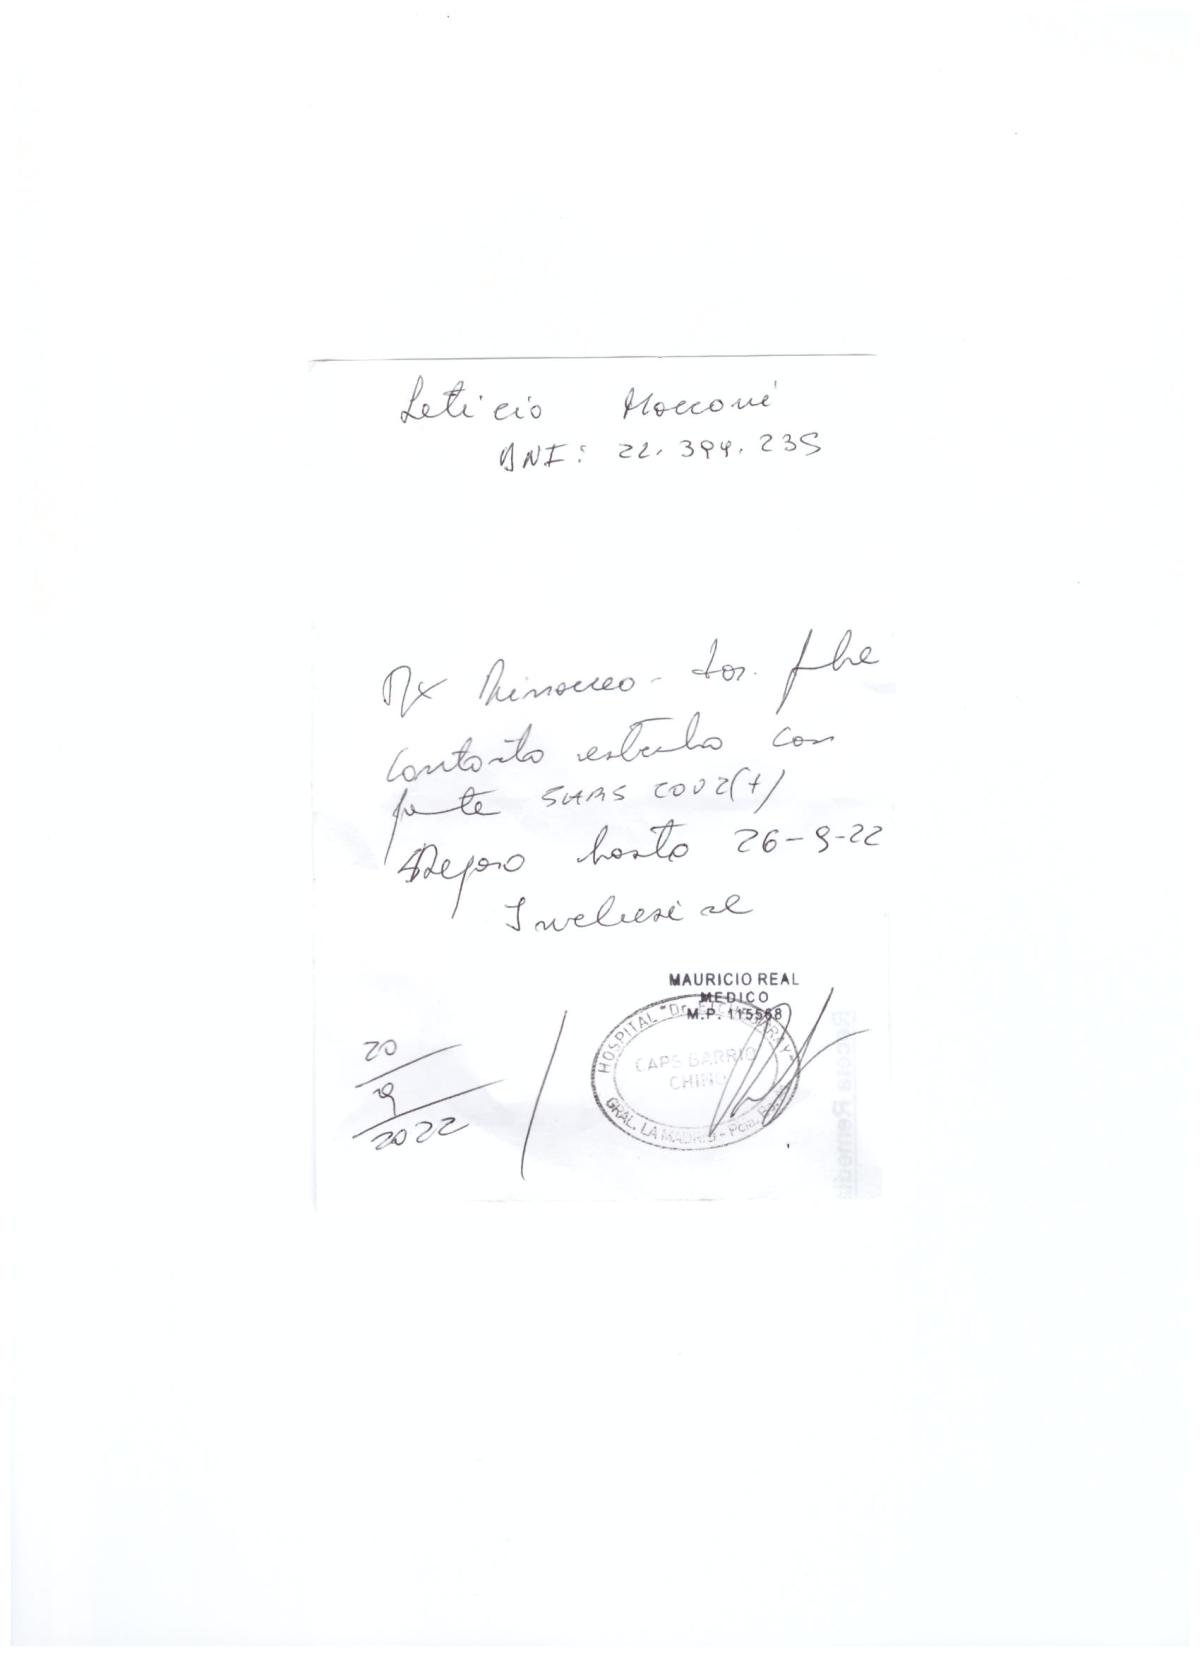 Leticia Macconi
DNI: 22.394.235
Dx Rinorrea - tos. fbe
Contacto estrecho con
pcte SARS COV2(+)
Reposo hasta 26-9-22
Inclusive
MAURICIO REAL
MEDICO
M.P. 115568
HOSPITAL "Dr.
CAPS BARRIO
CHINO
GRAL. LA MADRID - Pcia. Bs.
20
9
2022
Receta Remedia